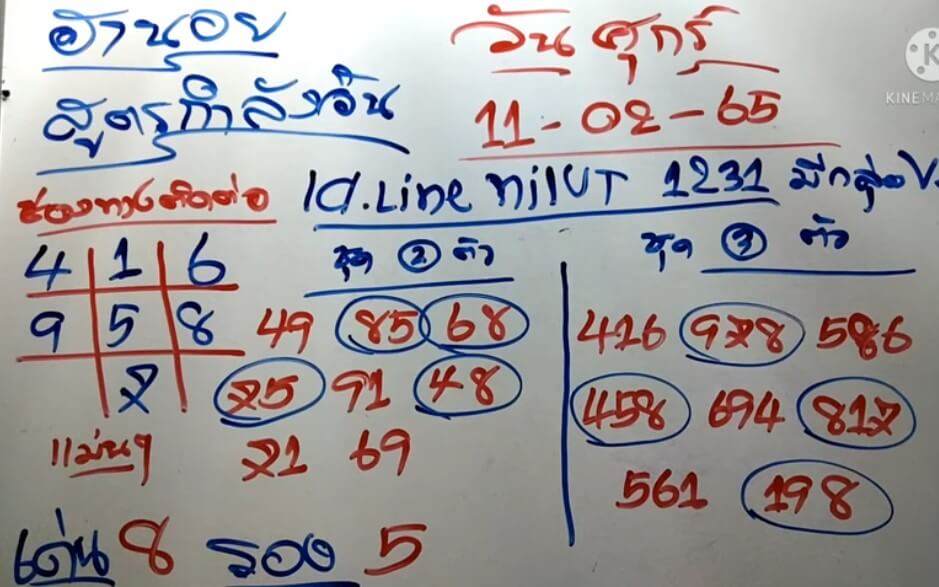 ฮานอย วันศุกร์
สูตรกำลังวัน 11-02-65
KINEMA
ช่องทางติดต่อ Id.Line nilUT 1231
4 1 6 ชุด 2 ตัว ชุด 3 ตัว
9 5 8 49 85 68 416 978 586
7 75 91 48 458 694 817
แม่นๆ 71 69 561 198
เด่น 8 รอง 5